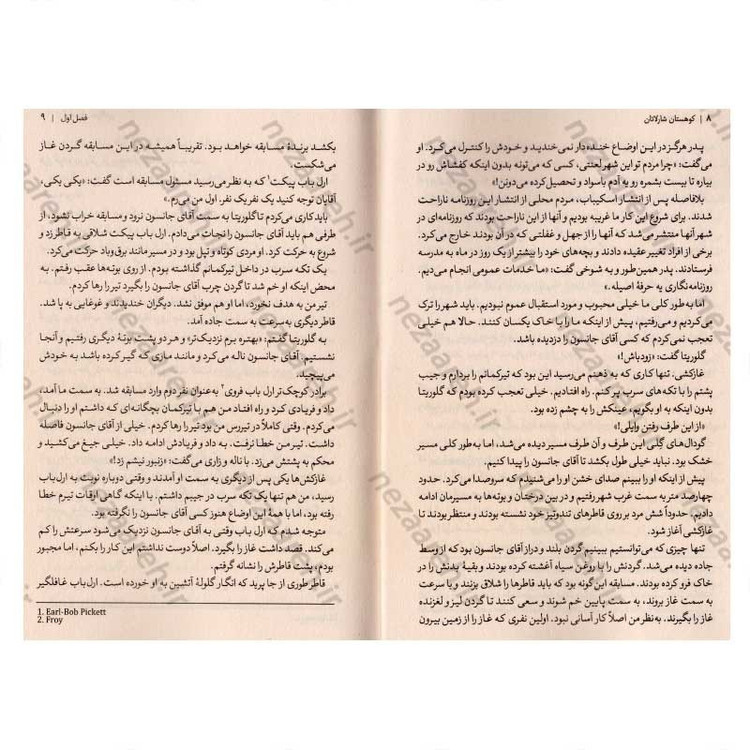 ۸ | کوهستان شارلاتان
پدر هرگز در این اوضاع خنده‌دار نمی‌خندید و خودش را کنترل می‌کرد. او
می‌گفت: «چرا مردم تو این شهر لعنتی، کسی که می‌تونه بدون اینکه کفشاش رو در
بیاره تا بیست بشمره رو یه آدم باسواد و تحصیل‌کرده می‌دونن!»
بلافاصله پس از انتشار اسکیباب، مردم محلی از انتشار این روزنامه ناراحت
شدند. برای شروع این کار ما غریبه بودیم و آنها از این ناراحت بودند که روزنامه‌ای در
شهر آنها منتشر می‌شد که آنها را از جهل و غفلتی که در آن بودند خارج می‌کرد.
برخی از افراد تغییر عقیده دادند و بچه‌های خود را بیشتر از یک روز در ماه به مدرسه
فرستادند. پدر همین‌طور و به شوخی گفت: «ما خدمات عمومی انجام می‌دیم.
روزنامه‌نگاری یه حرفهٔ اصیله.»
اما به‌طور کلی ما خیلی محبوب و مورد استقبال عموم نبودیم. باید شهر را ترک
می‌کردیم و می‌رفتیم، پیش از اینکه ما را با خاک یکسان کنند. حالا هم خیلی
تعجب نمی‌کردم که کسی آقای جانسون را دزدیده باشد.
گلوریتا گفت: «زودباش!»
غازکشی، تنها کاری که به ذهنم می‌رسید این بود که تیرکمانم را بردارم و جیب
پشتم را با تکه‌های سرب پر کنم. راه افتادیم. خیلی تعجب کرده بودم که گلوریتا
بدون اینکه به او بگویم، عینکش را به چشم زده بود.
«از این طرف رفتن وایلی!»
گودال‌های گلی این طرف و آن طرف مسیر دیده می‌شد، اما به‌طور کلی مسیر
خشک بود. نباید خیلی طول بکشد تا آقای جانسون را پیدا کنیم.
پیش از اینکه او را ببینم صدای خشن او را می‌شنیدم که سروصدا می‌کرد. حدود
چهارصد متر به سمت غرب شهر رفتیم و در بین درختان و بوته‌ها به مسیرمان ادامه
دادیم. حدوداً شش مرد بر روی قاطرهای تندوتیز خود نشسته بودند و منتظر بودند تا
غازکشی آغاز شود.
تنها چیزی که می‌توانستیم ببینیم گردن بلند و دراز آقای جانسون بود که از وسط
جاده دیده می‌شد. گردنش را با روغن سیاه آغشته کرده بودند و بقیهٔ بدنش را در
خاک فرو کرده بودند. مسابقه این‌گونه بود که باید قاطرها را شلاق بزنند و با سرعت
به سمت غاز بروند، به سمت پایین خم شوند و سعی کنند تا گردن لیز و لغزنده
غاز را بگیرند. به‌نظر من اصلاً کار آسانی نبود. اولین نفری که غاز را از زمین بیرون
فصل اول | ۹
بکشد برندهٔ مسابقه خواهد بود. تقریباً همیشه در این مسابقه گردن غاز
می‌شکست.
ارل باب پیکت۱ که به نظر می‌رسید مسئول مسابقه است گفت: «یکی یکی،
آقایان توجه کنید یک نفر یک نفر. اول من می‌رم.»
باید کاری می‌کردم تا گلوریتا به سمت آقای جانسون نرود و مسابقه خراب نشود، از
طرفی هم باید آقای جانسون را نجات می‌دادم. ارل باب پیکت شلاقی به قاطر زد و
شروع به حرکت کرد. او مردی کوتاه و تپل بود و در مسیر مانند برق‌وباد حرکت می‌کرد.
یک تکه سرب در داخل تیرکمانم گذاشته بودم. از روی بوته‌ها عقب رفتم. به
محض اینکه او خم شد تا گردن چرب آقای جانسون را بگیرد تیر را رها کردم.
تیر من به هدف نخورد، اما او هم موفق نشد. دیگران خندیدند و غوغایی به پا شد.
قاطر دیگری به‌سرعت به سمت جاده آمد.
به گلوریتا گفتم: «بهتره برم نزدیک‌تر» و هر دو پشت بوتهٔ دیگری رفتیم و آنجا
نشستیم. آقای جانسون ناله می‌کرد و مانند ماری که گیر کرده باشد به خودش
می‌پیچید.
برادر کوچک‌تر ارل باب فروی۲ به‌عنوان نفر دوم وارد مسابقه شد. به سمت ما آمد،
داد و فریادی کرد و راه افتاد. من هم با تیرکمان بچگانه‌ای که داشتم او را دنبال
می‌کردم. وقتی کاملاً در تیررس من بود تیر را رها کردم. خیلی از آقای جانسون فاصله
داشت. تیر من خطا نرفت. به داد و فریادش ادامه داد. خیلی جیغ می‌کشید و
محکم به پشتش می‌زد. با ناله و زاری می‌گفت: «زنبور نیشم زد!»
غازکش‌ها یکی پس از دیگری به سمت او آمدند و وقتی دوباره نوبت به ارل‌باب
رسید، من هم تنها یک تکه سرب در جیبم داشتم. با اینکه گاهی اوقات تیرم خطا
رفته بود، اما با همهٔ این اوضاع هنوز کسی آقای جانسون را نگرفته بود.
متوجه شدم که ارل باب وقتی به آقای جانسون نزدیک می‌شود سرعتش را کم
می‌کند. قصد داشت غاز را بگیرد. اصلاً دوست نداشتم این کار را بکنم، اما مجبور
بودم، پشت قاطرش را نشانه گرفتم.
قاطر طوری از جا پرید که انگار گلولهٔ آتشین به او خورده است. ارل‌باب غافلگیر
1. Earl-Bob Pickett
2. Froy
nezaareh.ir